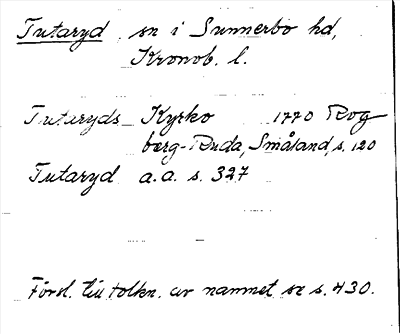 Tutaryd sn i Sunnerbo hd,
Kronob. l.
Tutaryds Kyrko 1770 Rog
berg-Ruda, Småland, s. 120
Tutaryd a.a. s. 327
Försl. till tolkn. av namnet se s. 430.